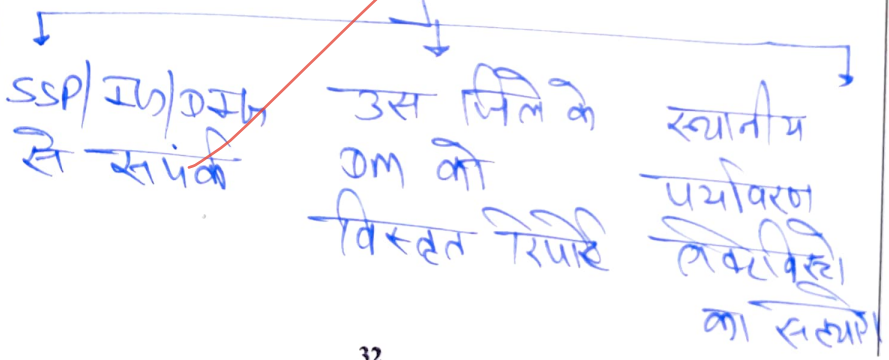 SSP/IG/DIG
से संपर्क
उस जिले के
DM को
विस्तृत रिपोर्ट
स्थानीय
पर्यावरण
का सहयोग
32